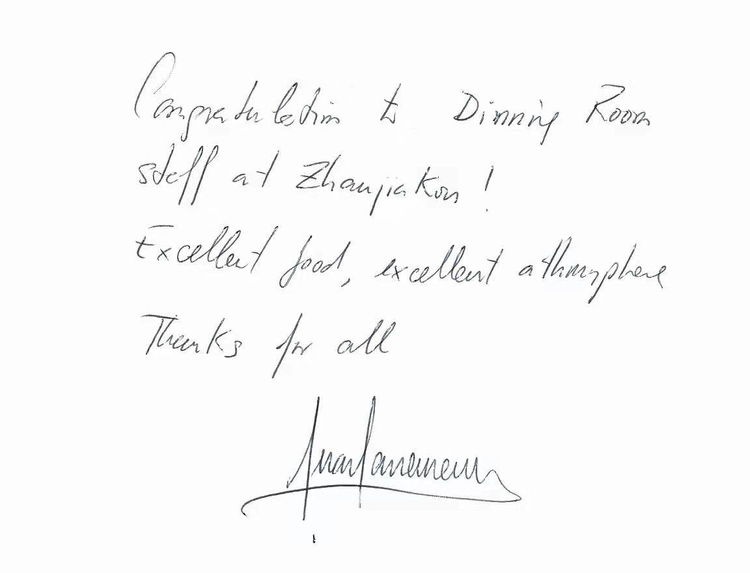 Congratulation to Dinning Room
staff at Zhanjiakou!
Excellent food, excellent athmosphere
Thanks for all